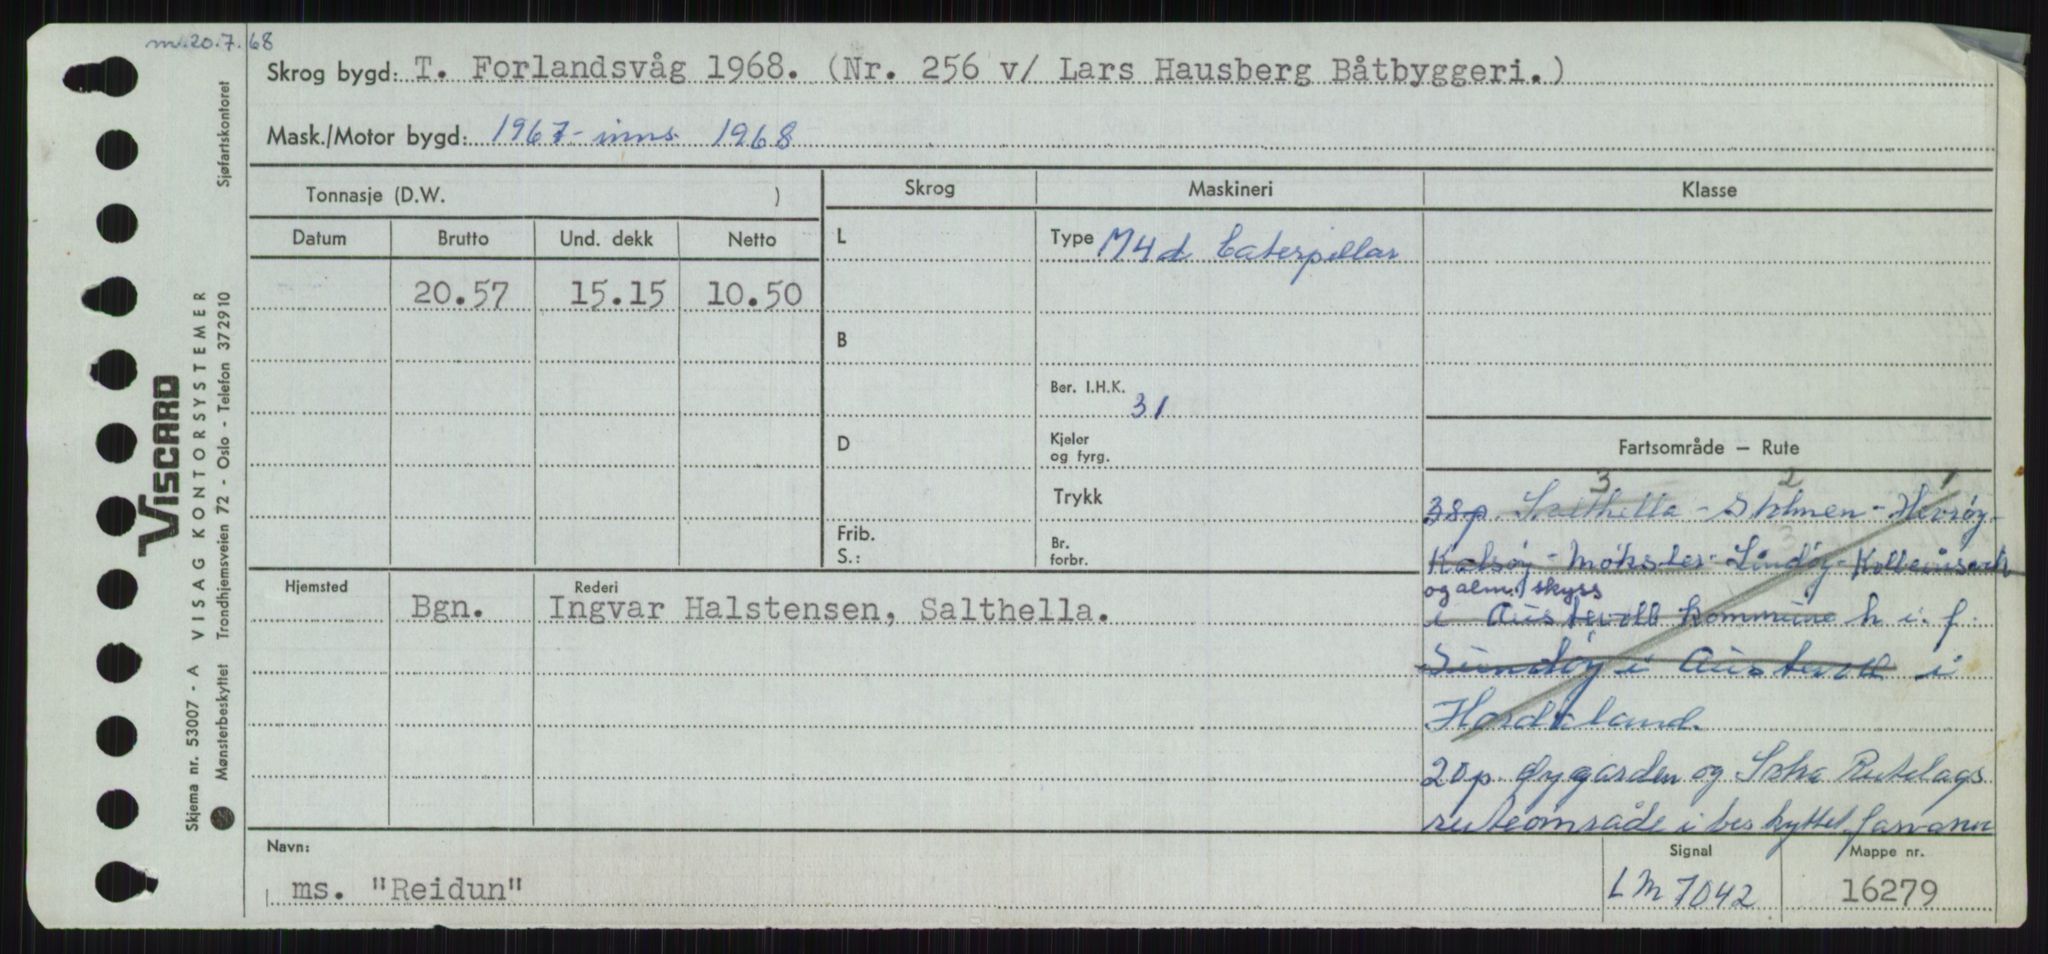 m. 20.7.68
Skrog bygd: T. Forlandsvåg 1968. (Nr. 256 v/ Lars Hausberg Båtbyggeri.)
Mask./Motor bygd: 1967 - inns. 1968
Sjøfartskontoret
VISCARD
VISAG KONTORSYSTEMER
Trondhjemsveien 72 - Oslo - Telefon 372910
Skjema nr. 53007 - A
Mønsterbeskyttet
Tonnasje (D.W. )
Skrog
Maskineri
Klasse
Datum
Brutto
Und. dekk
Netto
20.57
15.15
10.50
L
B
D
Frib.
S.:
Type M4d Caterpillar
Ber. I.H.K.
31
Kjeler
og fyrg.
Trykk
Br.
forbr.
Fartsområde — Rute
3 2 1
38p. Salthella - Stolmen - Hevrøy -
3
Kalsøy - Møkster - Lindøy - Kolbeinsvik
og alm. skyss
i Austevoll kommune h i. f.
i Austevoll i
Hordaland.
20p. Øygarden og Sotra Rutelags
ruteområde i beskyttet farvann
Hjemsted
Bgn.
Rederi
Ingvar Halstensen, Salthella.
Navn:
ms. "Reidun"
Signal
LM 7042
Mappe nr.
16279